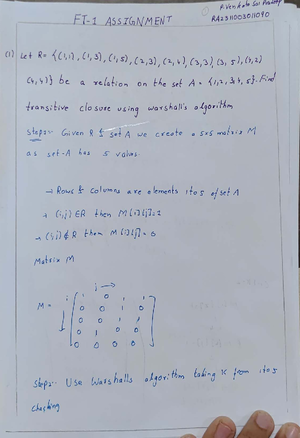 FT-1 ASSIGNMENT
RA2311003011090
(1) Let R = {(1,1), (1,3), (1,5), (2,3), (2,4), (3,3), (3,5), (4,2)
(4,4)} be a relation on the set A = {1,2,3,4,5}. Find
transitive closure using warshall's algorithm
step:- Given R & set A we create a 5x5 matrix M
as set-A has 5 values
→ Rows & columns are elements 1 to 5 of set A
→ (i,j) ∈ R then M[i][j]=1
→ (i,j) ∉ R then M[i][j]=0
Matrix M
j →
M =
i
0 0 1 1 0
0 0 1 0 1
0 1 0 1 0
0 0 0 0 0
step:- Use Warshalls algorithm taking K from 1 to 5
checking